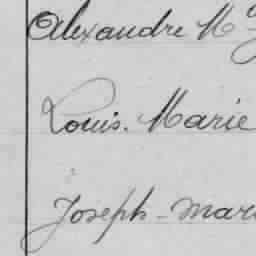 Alexandre M
Louis. Marie
Joseph-mar